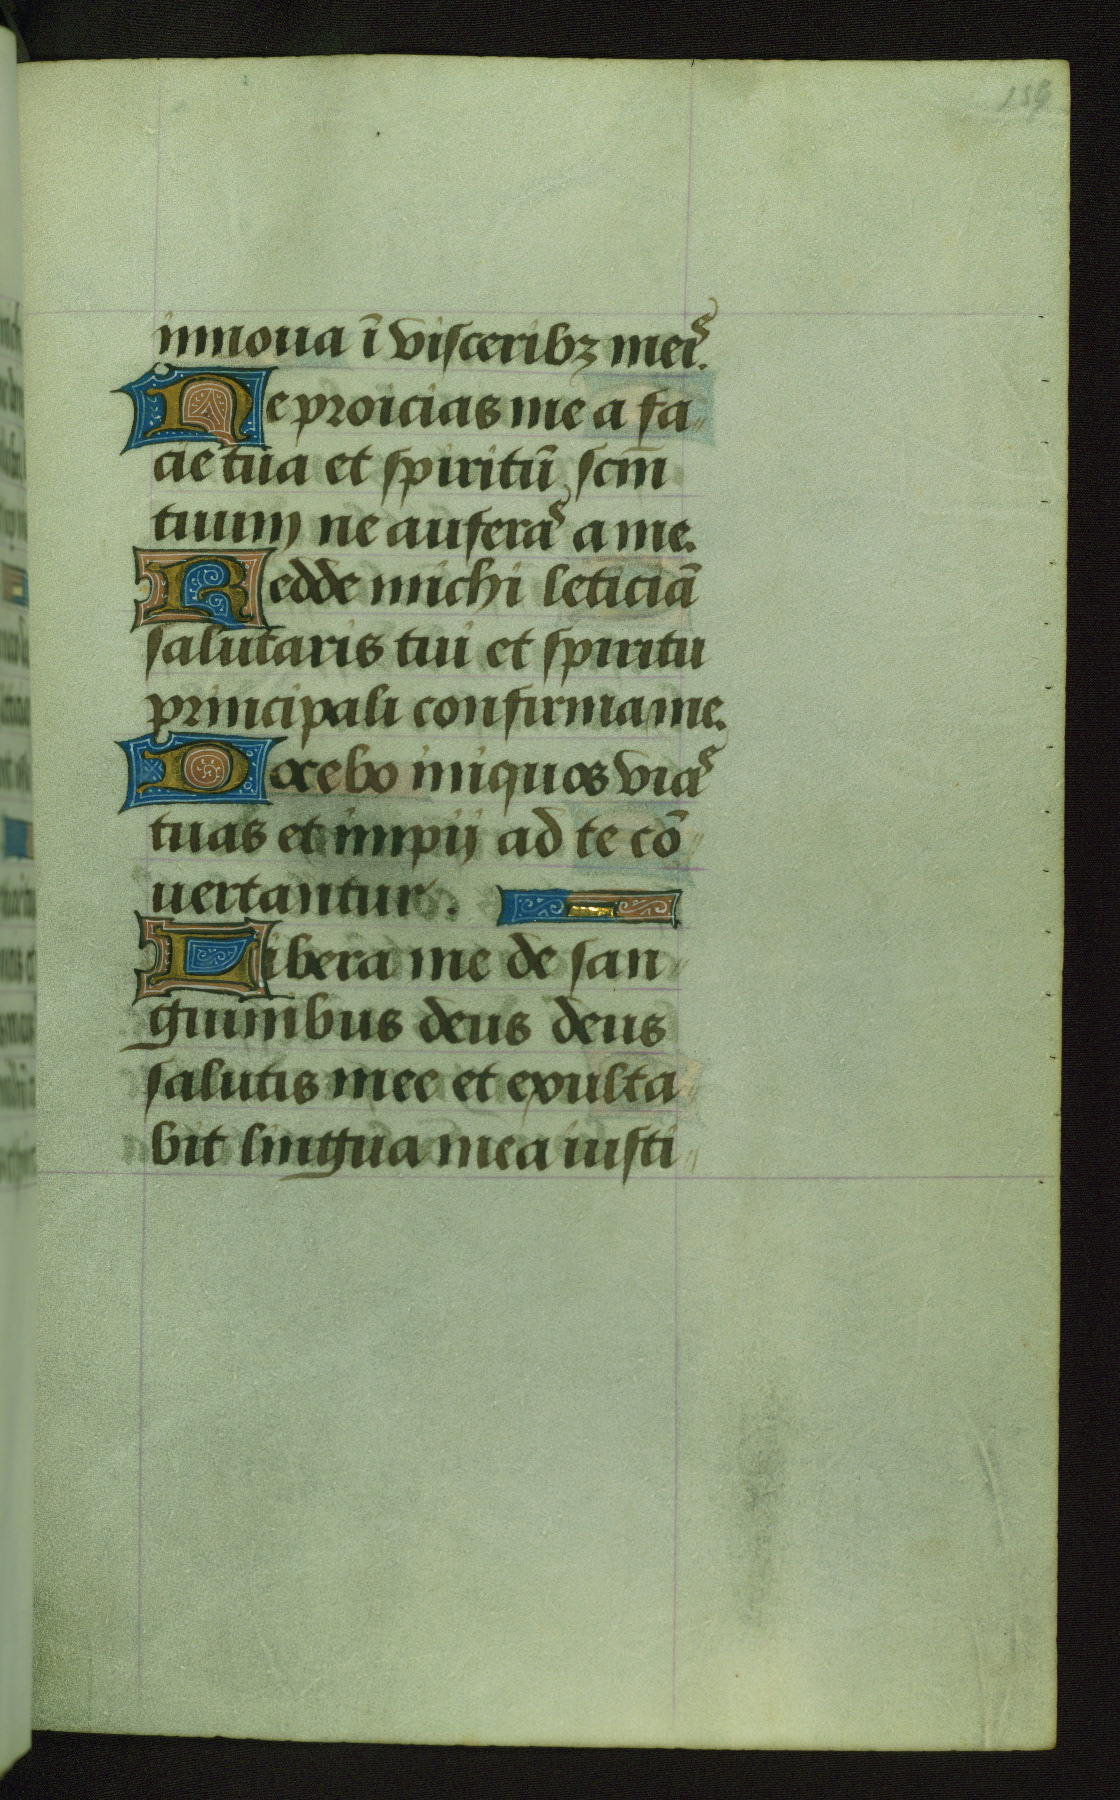 innoua ī visceribꝫ meis.
Ne proicias me a fa
cie tua et spiritū scm̄
tuum ne auferas a me.
Redde michi leticiā
salutaris tui et spiritu
principali confirma me.
Docebo iniquos vias
tuas et impij ad te cō
uertantur.
Libera me de san
guinibus deus deus
salutis mee et exulta
bit lingua mea iusti